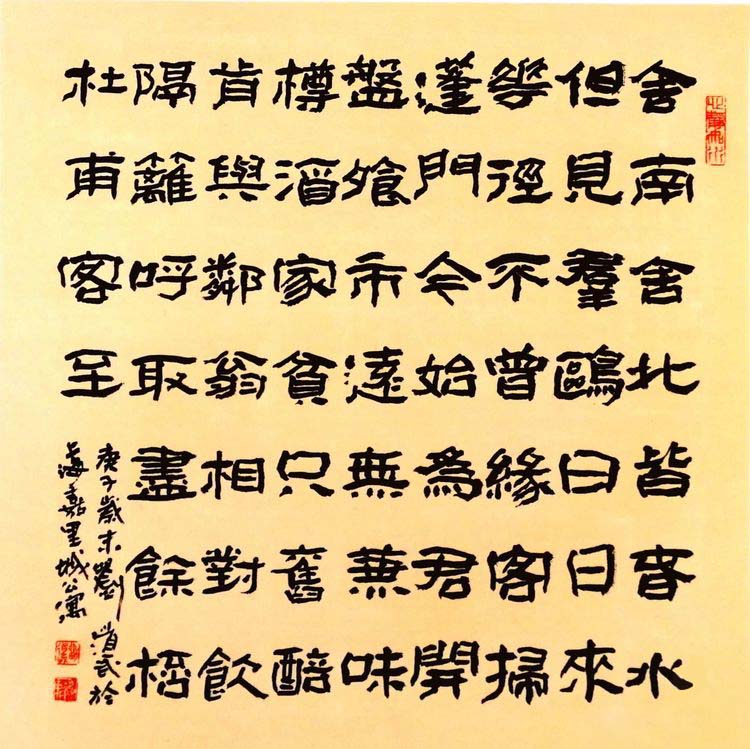 舍南舍北皆春水
但見羣鷗日日來
花徑不曾緣客掃
蓬門今始為君開
盤飧市遠無兼味
樽酒家貧只舊醅
肯與鄰翁相對飲
隔籬呼取盡餘桮
杜甫客至
庚子歲末劉於
上海嘉里城公寓